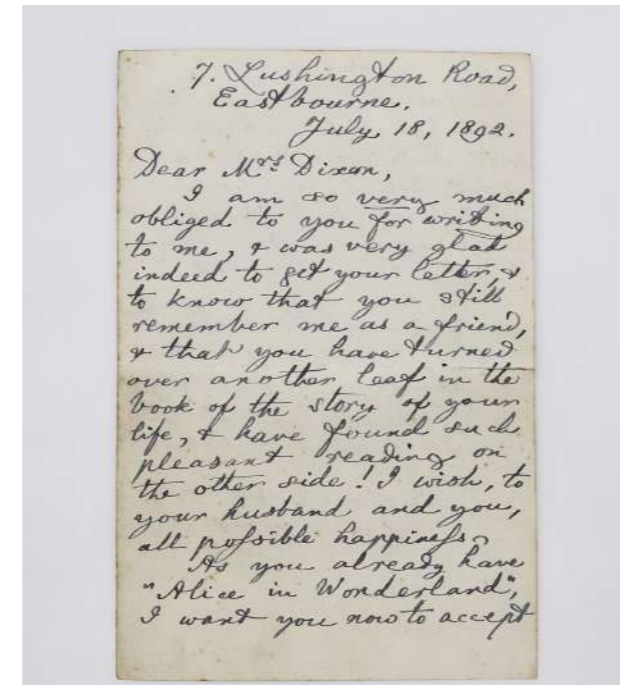 7. Lushington Road,
Eastbourne.
July 18, 1892.
Dear Mrs. Dixon,
I am so very much
obliged to you for writing
to me, & was very glad
indeed to get your letter, &
to know that you still
remember me as a friend,
& that you have turned
over another leaf in the
book of the story of your
life, & have found such
pleasant reading on
the other side! I wish, to
your husband and you,
all poſsible happineſs.
As you already have
"Alice in Wonderland",
I want you now to accept